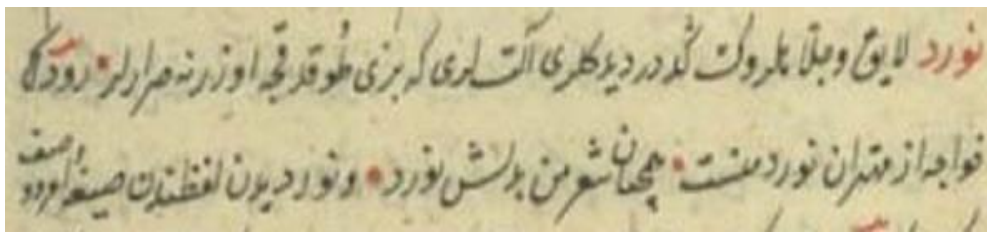 نورد لایق و جلا هلر وکت کُلدر دیدکلری آلت لری که بزی طوقدقجه اوزرنه صرارلر • رودکی
خواجه از مهتران نورد منست • همچنان شعر من بدلش نورد • و نوردیدن لفظندن صیغهٔ امر و وصف